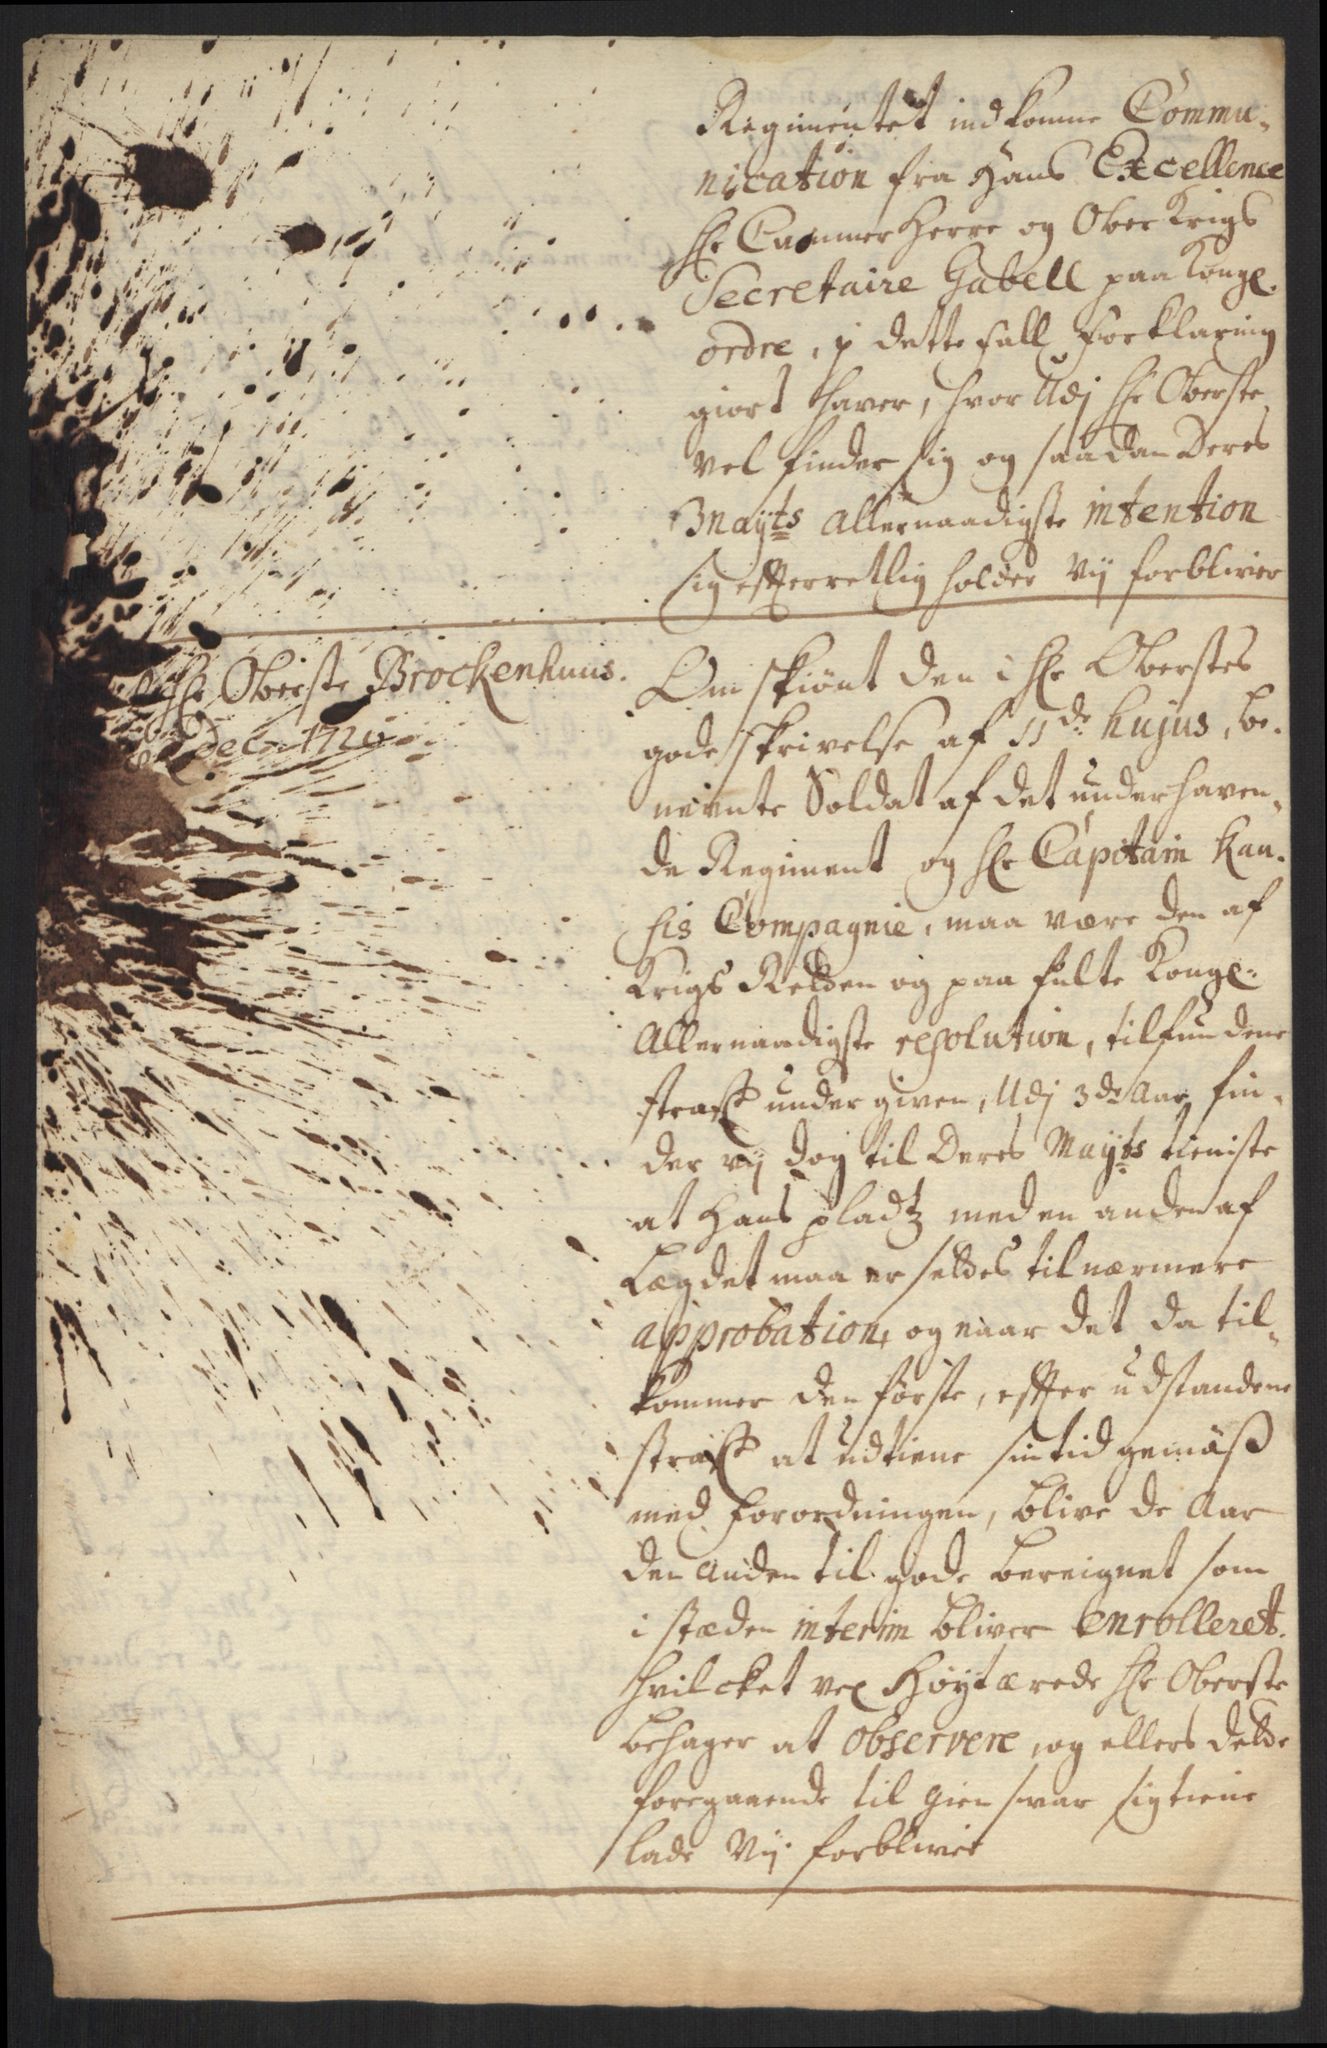 Regimentet indkomne Commu-
nication fra Hans Excellence
Hr Cammer Herre og Ober Krigs
Secretaire Gabell paa Kongl.
ordre, j dette fall forklaring
giort haver, hvor Udj Hr Oberste
vel finder sig og saadan Deres
Mayts allernaadigste intention
sig effterretlig holder Vij forbliver
Hr Oberste Brockenhuus.
Dec: 1720
Om skiönt den i Hr Oberstes
gode skrivelse af 11de hujus, be-
nevnte Soldat af det underhaven-
de Regiment og Hr Capitain Kau-
his Compagnie, maa være den af
Krigs Retten og paa fulte Kongl.
Allernaadigste resolution, tilfundene
straff undergiven, Udj 3de Aar, fin-
der vij dog til Deres Mayts tieniste
at Hans pladtz med en anden af
Lægdet maa ersettes til nærmere
approbation, og naar det da til-
kommer den förste, effter udstandene
straff at udtiene sin tid gemäss
med forordningen, blive de Aar
den anden til gode bereignet som
i stæden interim bliver enrolleret.
hvilcket vel Höytærede Hr Oberste
behager at observere, og ellers dette
foregaaende til giensvar sig tiene
lade Vij forbliver